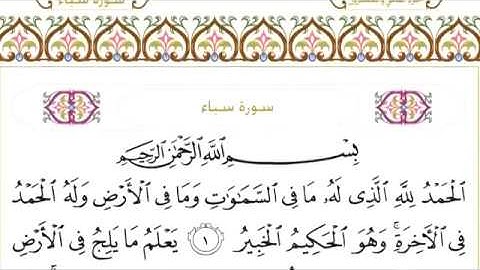 سورة سباء
سورة سباء
بِسْمِ اللَّهِ الرَّحْمَٰنِ الرَّحِيمِ
الْحَمْدُ لِلَّهِ الَّذِى لَهُۥ مَا فِى السَّمَٰوَٰتِ وَمَا فِى الْأَرْضِ وَلَهُ الْحَمْدُ
فِى الْأَخِرَةِ ۚ وَهُوَ الْحَكِيمُ الْخَبِيرُ ١ يَعْلَمُ مَا يَلِجُ فِى الْأَرْضِ